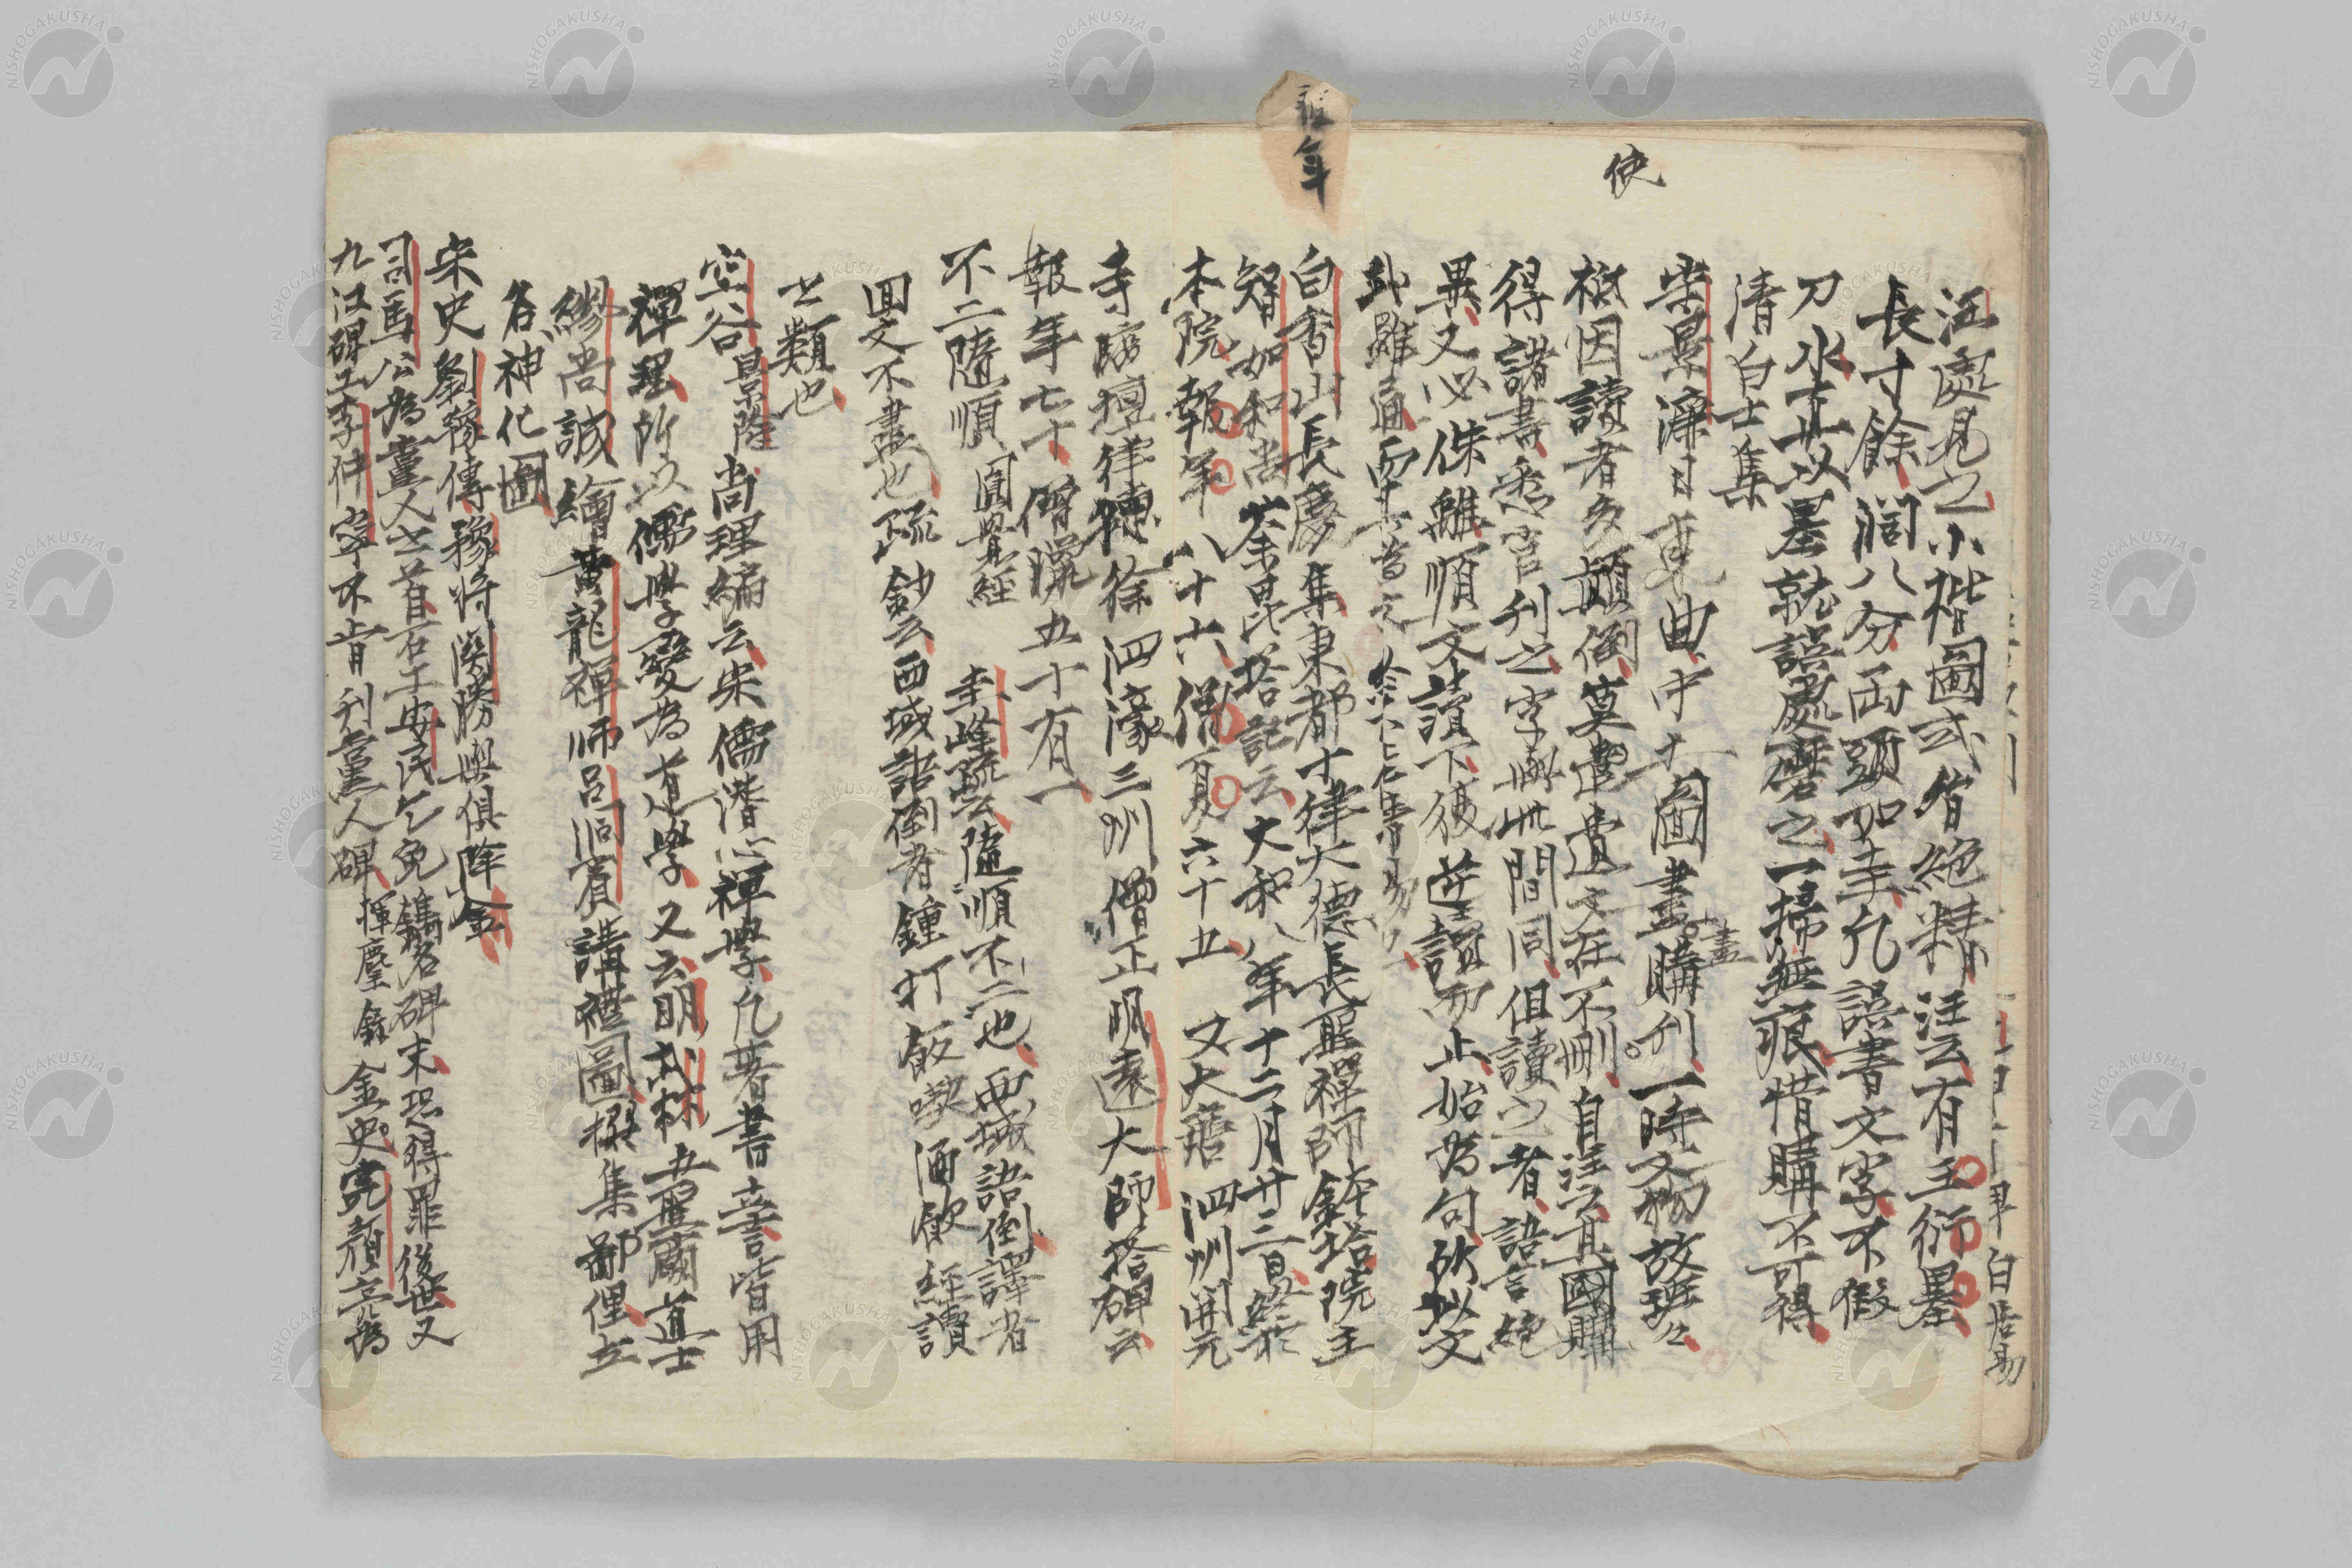 使
報年
汪處見之小楷圖式皆絶精汪云有王衍墨
長寸餘濶八分両頭如圭凡誤書文字不假
刀水直以墨就誤處磨之一掃無痕惜購不可得
清白士集
柴景濂日東曲中十圖書盡購刋一時文物故斑々
盡
秖因讀者多顛倒莫遣遺文在不刪自注云其國購
得諸書悉官刋之字與此間同但讀之者語言絶
異又必侏離順文讀下復逆讀而止始為句所以文
武雖通而其
白香山長慶集東都十律大德長聖禪師鉢塔院主
智如和尚荼毘塔記云大和八年十二月廿三日終於
本院報年八十六僧夏六十五 又大唐泗洲開元
寺臨壇律德徐泗濠三州僧正明遠大師塔碑云
報年七十僧臘五十有一
不二隨順 圓覺經 圭峰疏云隨順不二也西域語倒譯者
回文不盡也 疏鈔云西域語倒者鍾打飯喫酒飲經讀
之類也
空谷景隆尚理編云宋儒潜心禪學凡著書立言皆用
禪理所以儒學變為道學又云明武林五聖廟道士
繆尚誠繪黄龍禪师呂洞賓講禮圖撰集鄙俚立
名神化圖
宋史劉豫傳豫将関勝與俱降金
司馬公為黨人之首石工安民乞免鐫名碑末恐得罪後世又
九江碑工李仲寧不肯刋黨人碑 揮麈錄 金史完顔立為
白居易
NISHOGAKUSHA